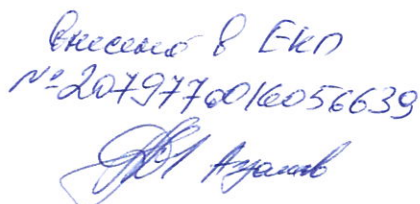 Внесено в ЕКП
№ 2079770016056639